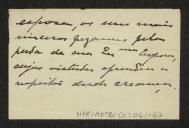 esposa, os seus mais
sinceros pezames pela
perda da sua Ex.ma
cujas virtudes aprendeu a
respeitar desde creança.